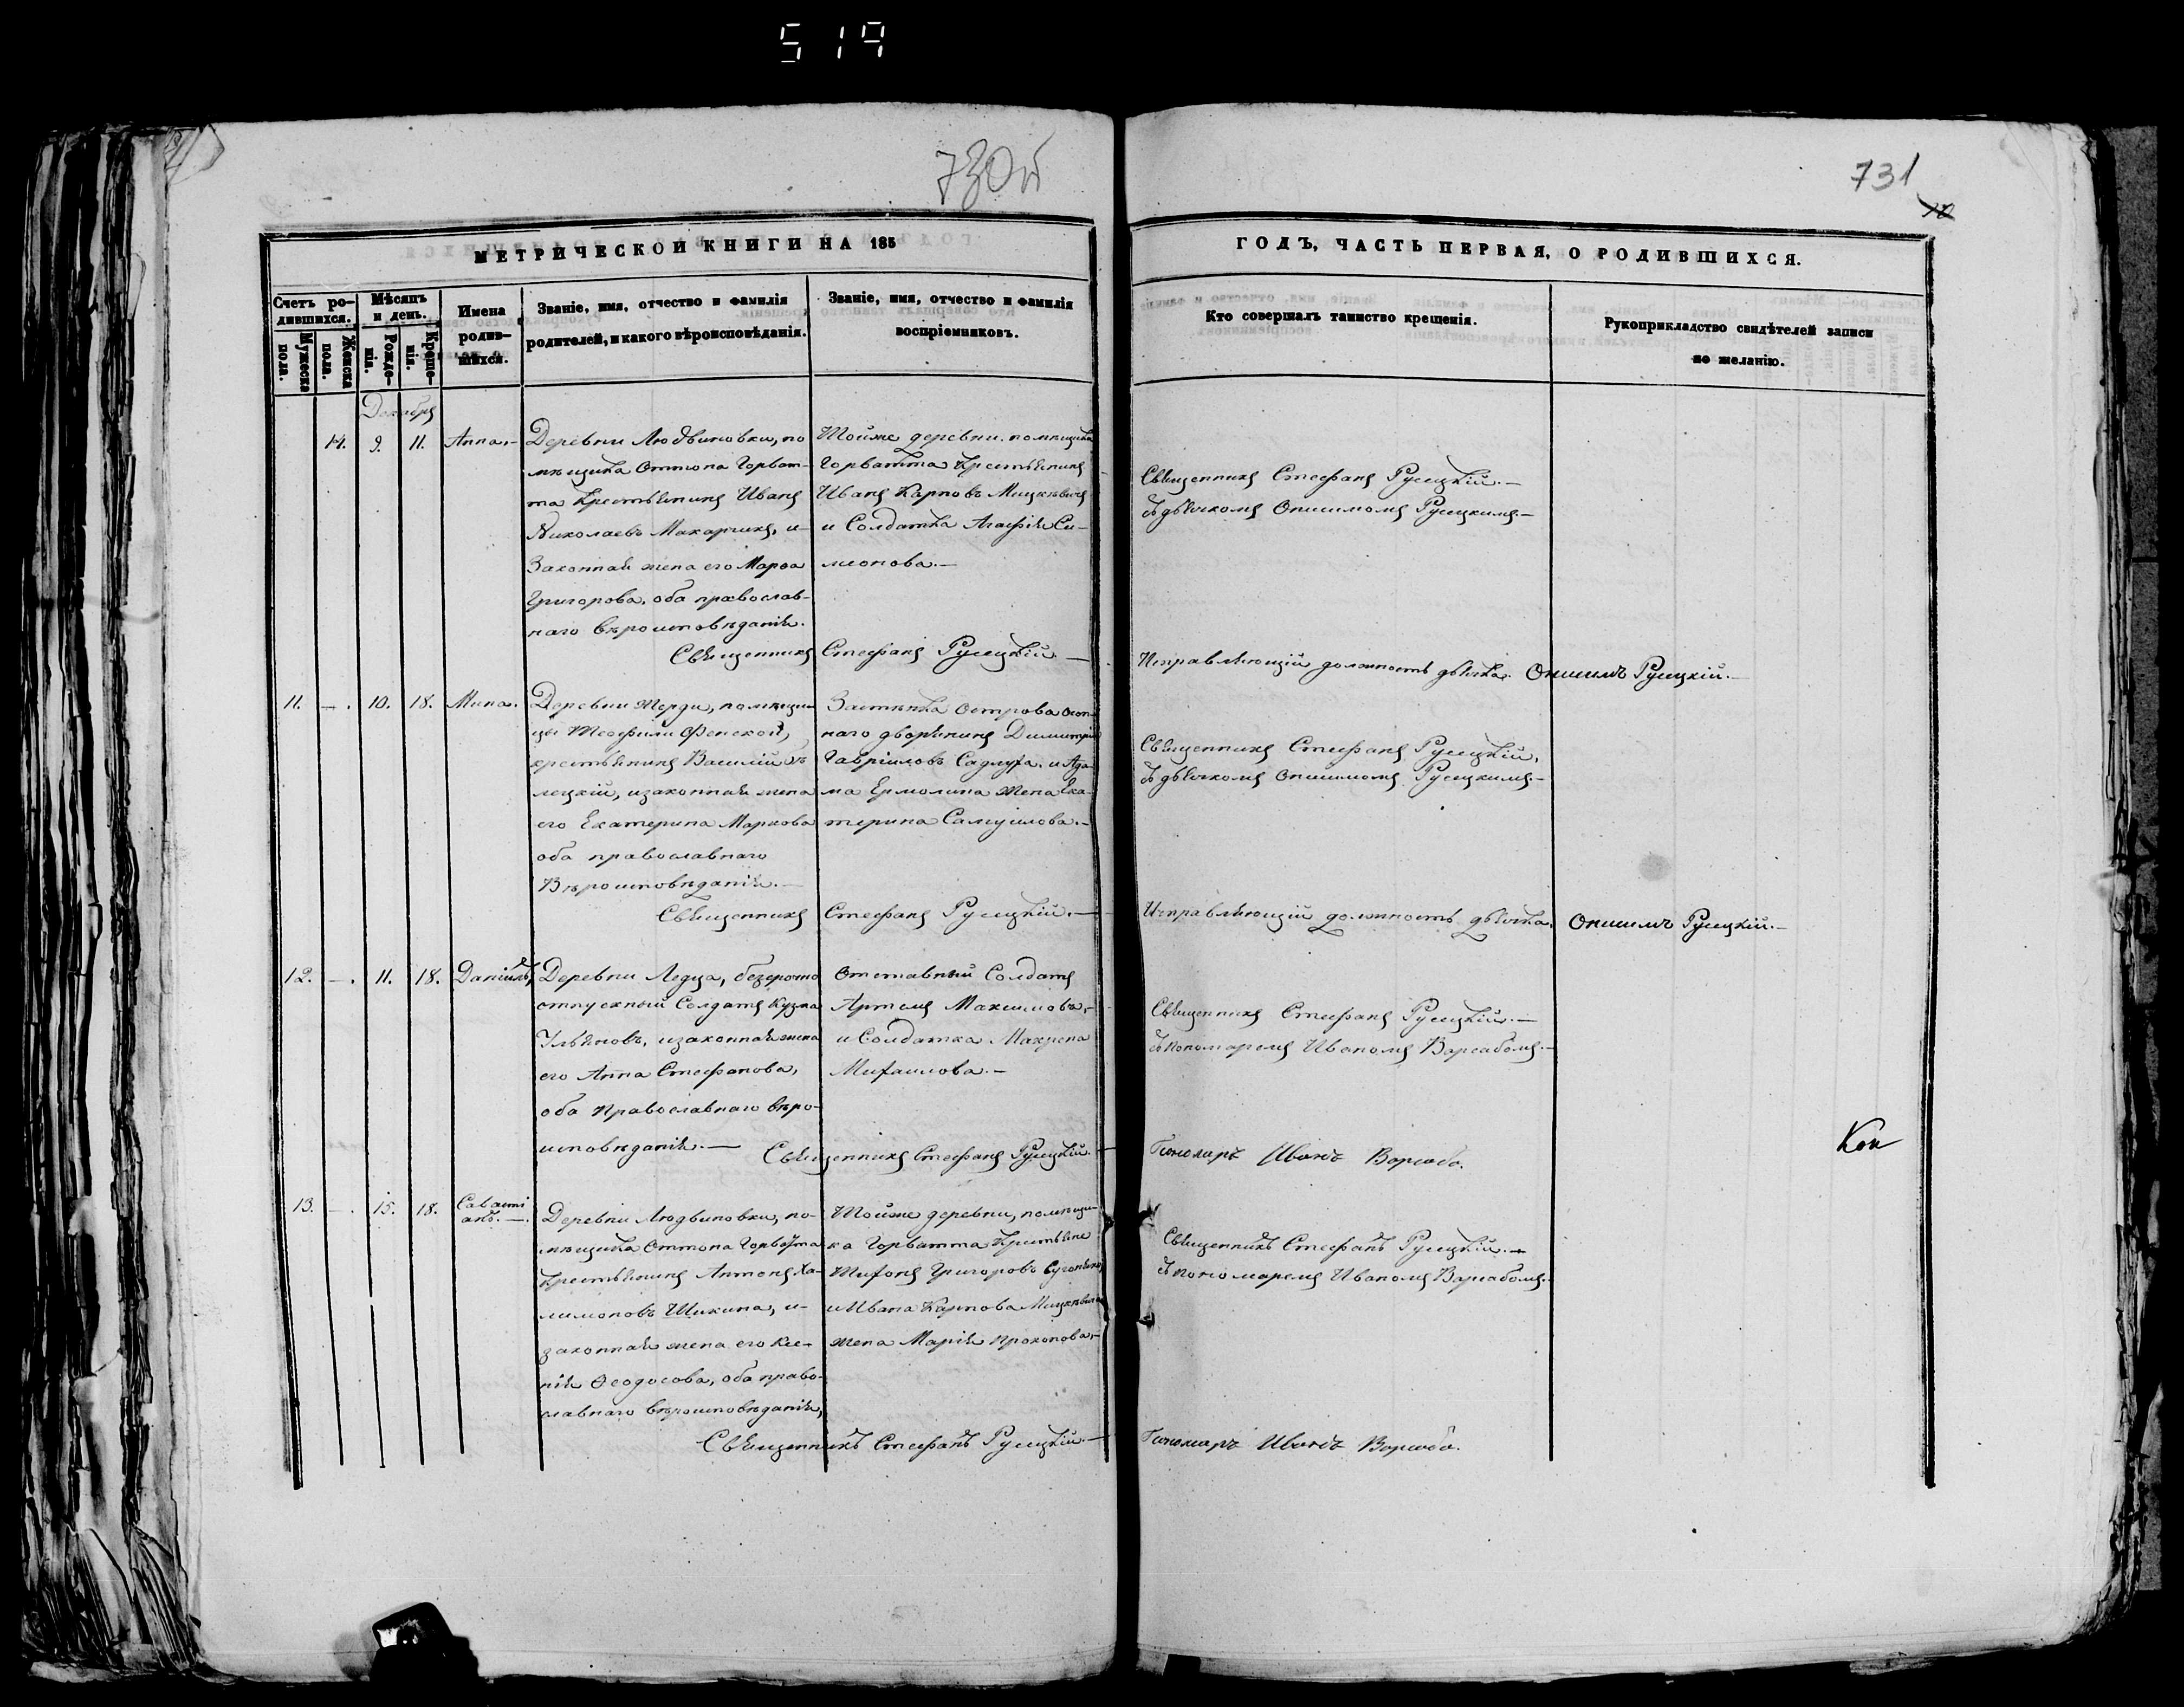 519
730об
731
МЕТРИЧЕСКОЙ КНИГИ НА 185
ГОДЪ, ЧАСТЬ ПЕРВАЯ, О РОДИВШИХСЯ.
Счетъ ро-
дившихся.
Мужеска
пола.
Женска
пола.
Мѣсяцъ
и день.
Рожде-
нія.
Креще-
нія.
Имена
родив-
шихся.
Званіе, имя, отчество и фамилія
родителей, и какого вѣроисповѣданія.
Званіе, имя, отчество и фамилія
воспріемниковъ.
Кто совершалъ таинство крещенія.
Рукоприкладство свидѣтелей записи
по желанію.
Декабря
14. 9. 11. Анна.-
Деревни Людвиновки, по
мѣщика Оттона Горват-
та крестьянинъ Иванъ
Николаевъ Макарчикъ, и-
Законная жена его Марѳа
Григорова, оба православ-
наго вѣроисповѣданія.
Тойже деревни помѣщика
Горватта крестьянинъ
Иванъ Карповъ Мицкѣвичъ
и Солдатка Агафія Си-
меонова.-
Священникъ Стефанъ Русецкій.-
съ дьячкомъ Онисимомъ Русецкимъ.-
Священникъ Стефанъ Русецкій.-
Исправляющій должность дьячка. Онисимъ Русецкій.-
11. -. 10. 18. Мина.
Деревни Жерди, помѣщи-
цы Теофили Фенской,
крестьянинъ Василій
лецкій, и законная жена
его Екатерина Маркова
оба православнаго
Вѣроисповѣданія.-
Застѣнка Острова
наго дворянинъ Димитрій
Гавріиловъ и Ада-
ма Ермолина жена Ека-
терина Самуилова.-
Священникъ Стефанъ Русецкій,
съ дьячкомъ Онисимомъ Русецкимъ.-
Священникъ Стефанъ Русецкій.-
Исправляющій должность дьячка. Онисимъ Русецкій.-
12. -. 11. 18. Даніилъ,
Деревни Ледца, безсрочно
отпускный Солдатъ Кузма
Ульяновъ, и законная жена
его Анна Стефанова,
оба Православнаго вѣро-
исповѣданія.-
Отставный Солдатъ
Артемъ Максимовъ,-
и Солдатка Макрена
Михаилова.-
Священникъ Стефанъ Русецкій.-
съ пономаремъ Иваномъ Варсабомъ.-
Священникъ Стефанъ Русецкій.-
Пономарь Иванъ Варсаба.
Кон
13. -. 15. 18. Савасті
анъ.-.
Деревни Людвиновки, по-
мѣщика Оттона Горватта
крестьянинъ Антонъ Ха-
лимоновъ Шикина, и-
законная жена его Ксе-
нія Ѳеодосова, оба право-
славнаго вѣроисповѣданія,
Тойже деревни, помѣщи-
ка Горватта крестьяне
Тихонъ Григоровъ
и Ивана Карпова Мицкѣвича
жена Марія Прокопова,-
Священникъ Стефанъ Русецкій.-
съ пономаремъ Иваномъ Варсабомъ.-
Священникъ Стефанъ Русецкій.-
Пономарь Иванъ Варсаба.